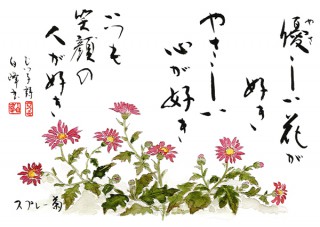 優しい花が
好き
やさしい
心が好き
いつも
笑顔の
人が好き
スプレー菊